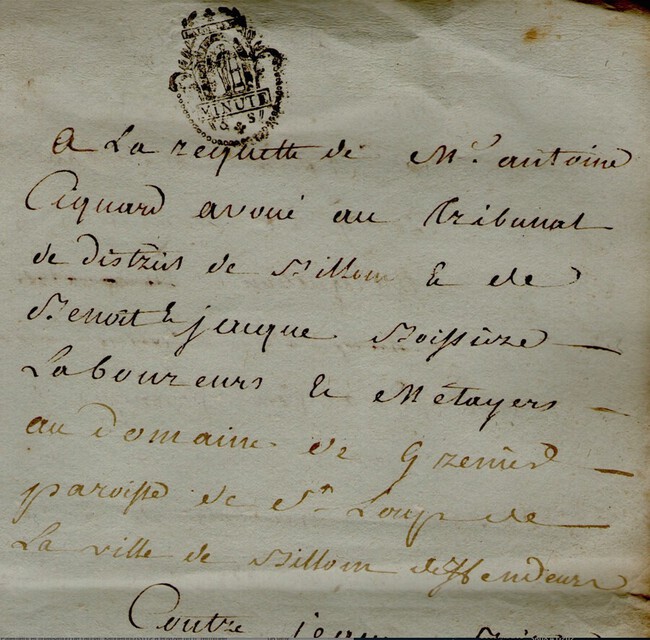 MINUTE
8 S
A La requette de Mr. antoine
avoué au Tribunal
de district de Billom & de
Benoît & jacque Boissière
Laboureurs & Métayers
au domaine de
paroisse de St Loup de
La ville de Billom deffendeurs
Contre